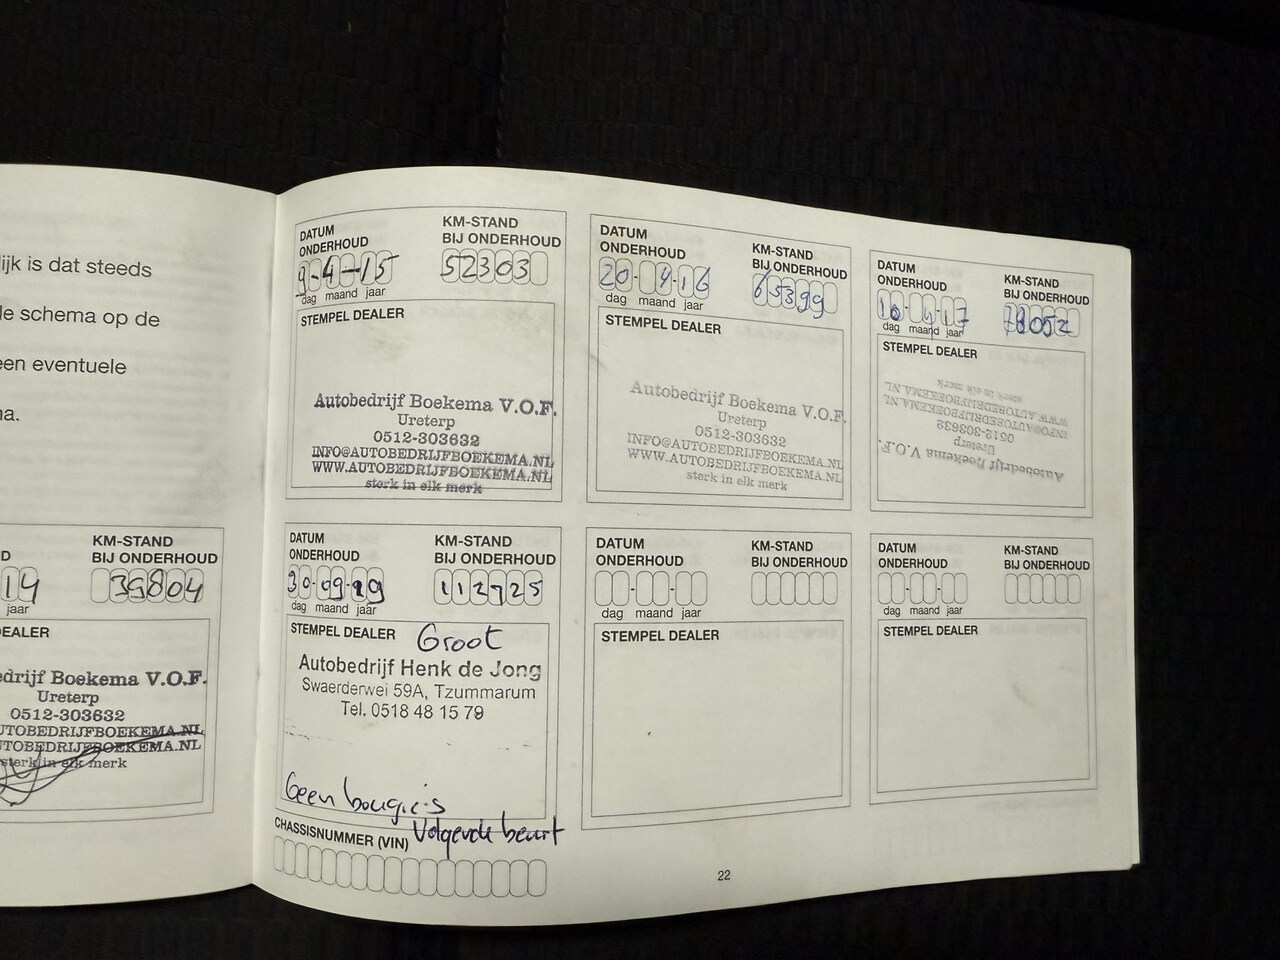 ijk is dat steeds
le schema op de
een eventuele
na.
D
KM-STAND
BIJ ONDERHOUD
14
39804
jaar
DEALER
edrijf Boekema V.O.F.
Ureterp
0512-303632
UTOBEDRIJFBOEKEMA.NL
UTOBEDRIJFBOEKEMA.NL
sterk in elk merk
DATUM
ONDERHOUD
KM-STAND
BIJ ONDERHOUD
9-4-15
52303
dag maand jaar
STEMPEL DEALER
Autobedrijf Boekema V.O.F.
Ureterp
0512-303632
INFO@AUTOBEDRIJFBOEKEMA.NL
WWW.AUTOBEDRIJFBOEKEMA.NL
sterk in elk merk
DATUM
ONDERHOUD
KM-STAND
BIJ ONDERHOUD
20-4-16
65399
dag maand jaar
STEMPEL DEALER
Autobedrijf Boekema V.O.F.
Ureterp
0512-303632
INFO@AUTOBEDRIJFBOEKEMA.NL
WWW.AUTOBEDRIJFBOEKEMA.NL
sterk in elk merk
DATUM
ONDERHOUD
KM-STAND
BIJ ONDERHOUD
10-4-17
78052
dag maand jaar
STEMPEL DEALER
Autobedrijf Boekema V.O.F.
Ureterp
0512-303632
INFO@AUTOBEDRIJFBOEKEMA.NL
WWW.AUTOBEDRIJFBOEKEMA.NL
sterk in elk merk
DATUM
ONDERHOUD
KM-STAND
BIJ ONDERHOUD
30-09-19
112725
dag maand jaar
STEMPEL DEALER
Groot
Autobedrijf Henk de Jong
Swaerderwei 59A, Tzummarum
Tel. 0518 48 15 79
Geen bougie's
Volgende beurt
CHASSISNUMMER (VIN)
DATUM
ONDERHOUD
KM-STAND
BIJ ONDERHOUD
dag maand jaar
STEMPEL DEALER
DATUM
ONDERHOUD
KM-STAND
BIJ ONDERHOUD
dag maand jaar
STEMPEL DEALER
22